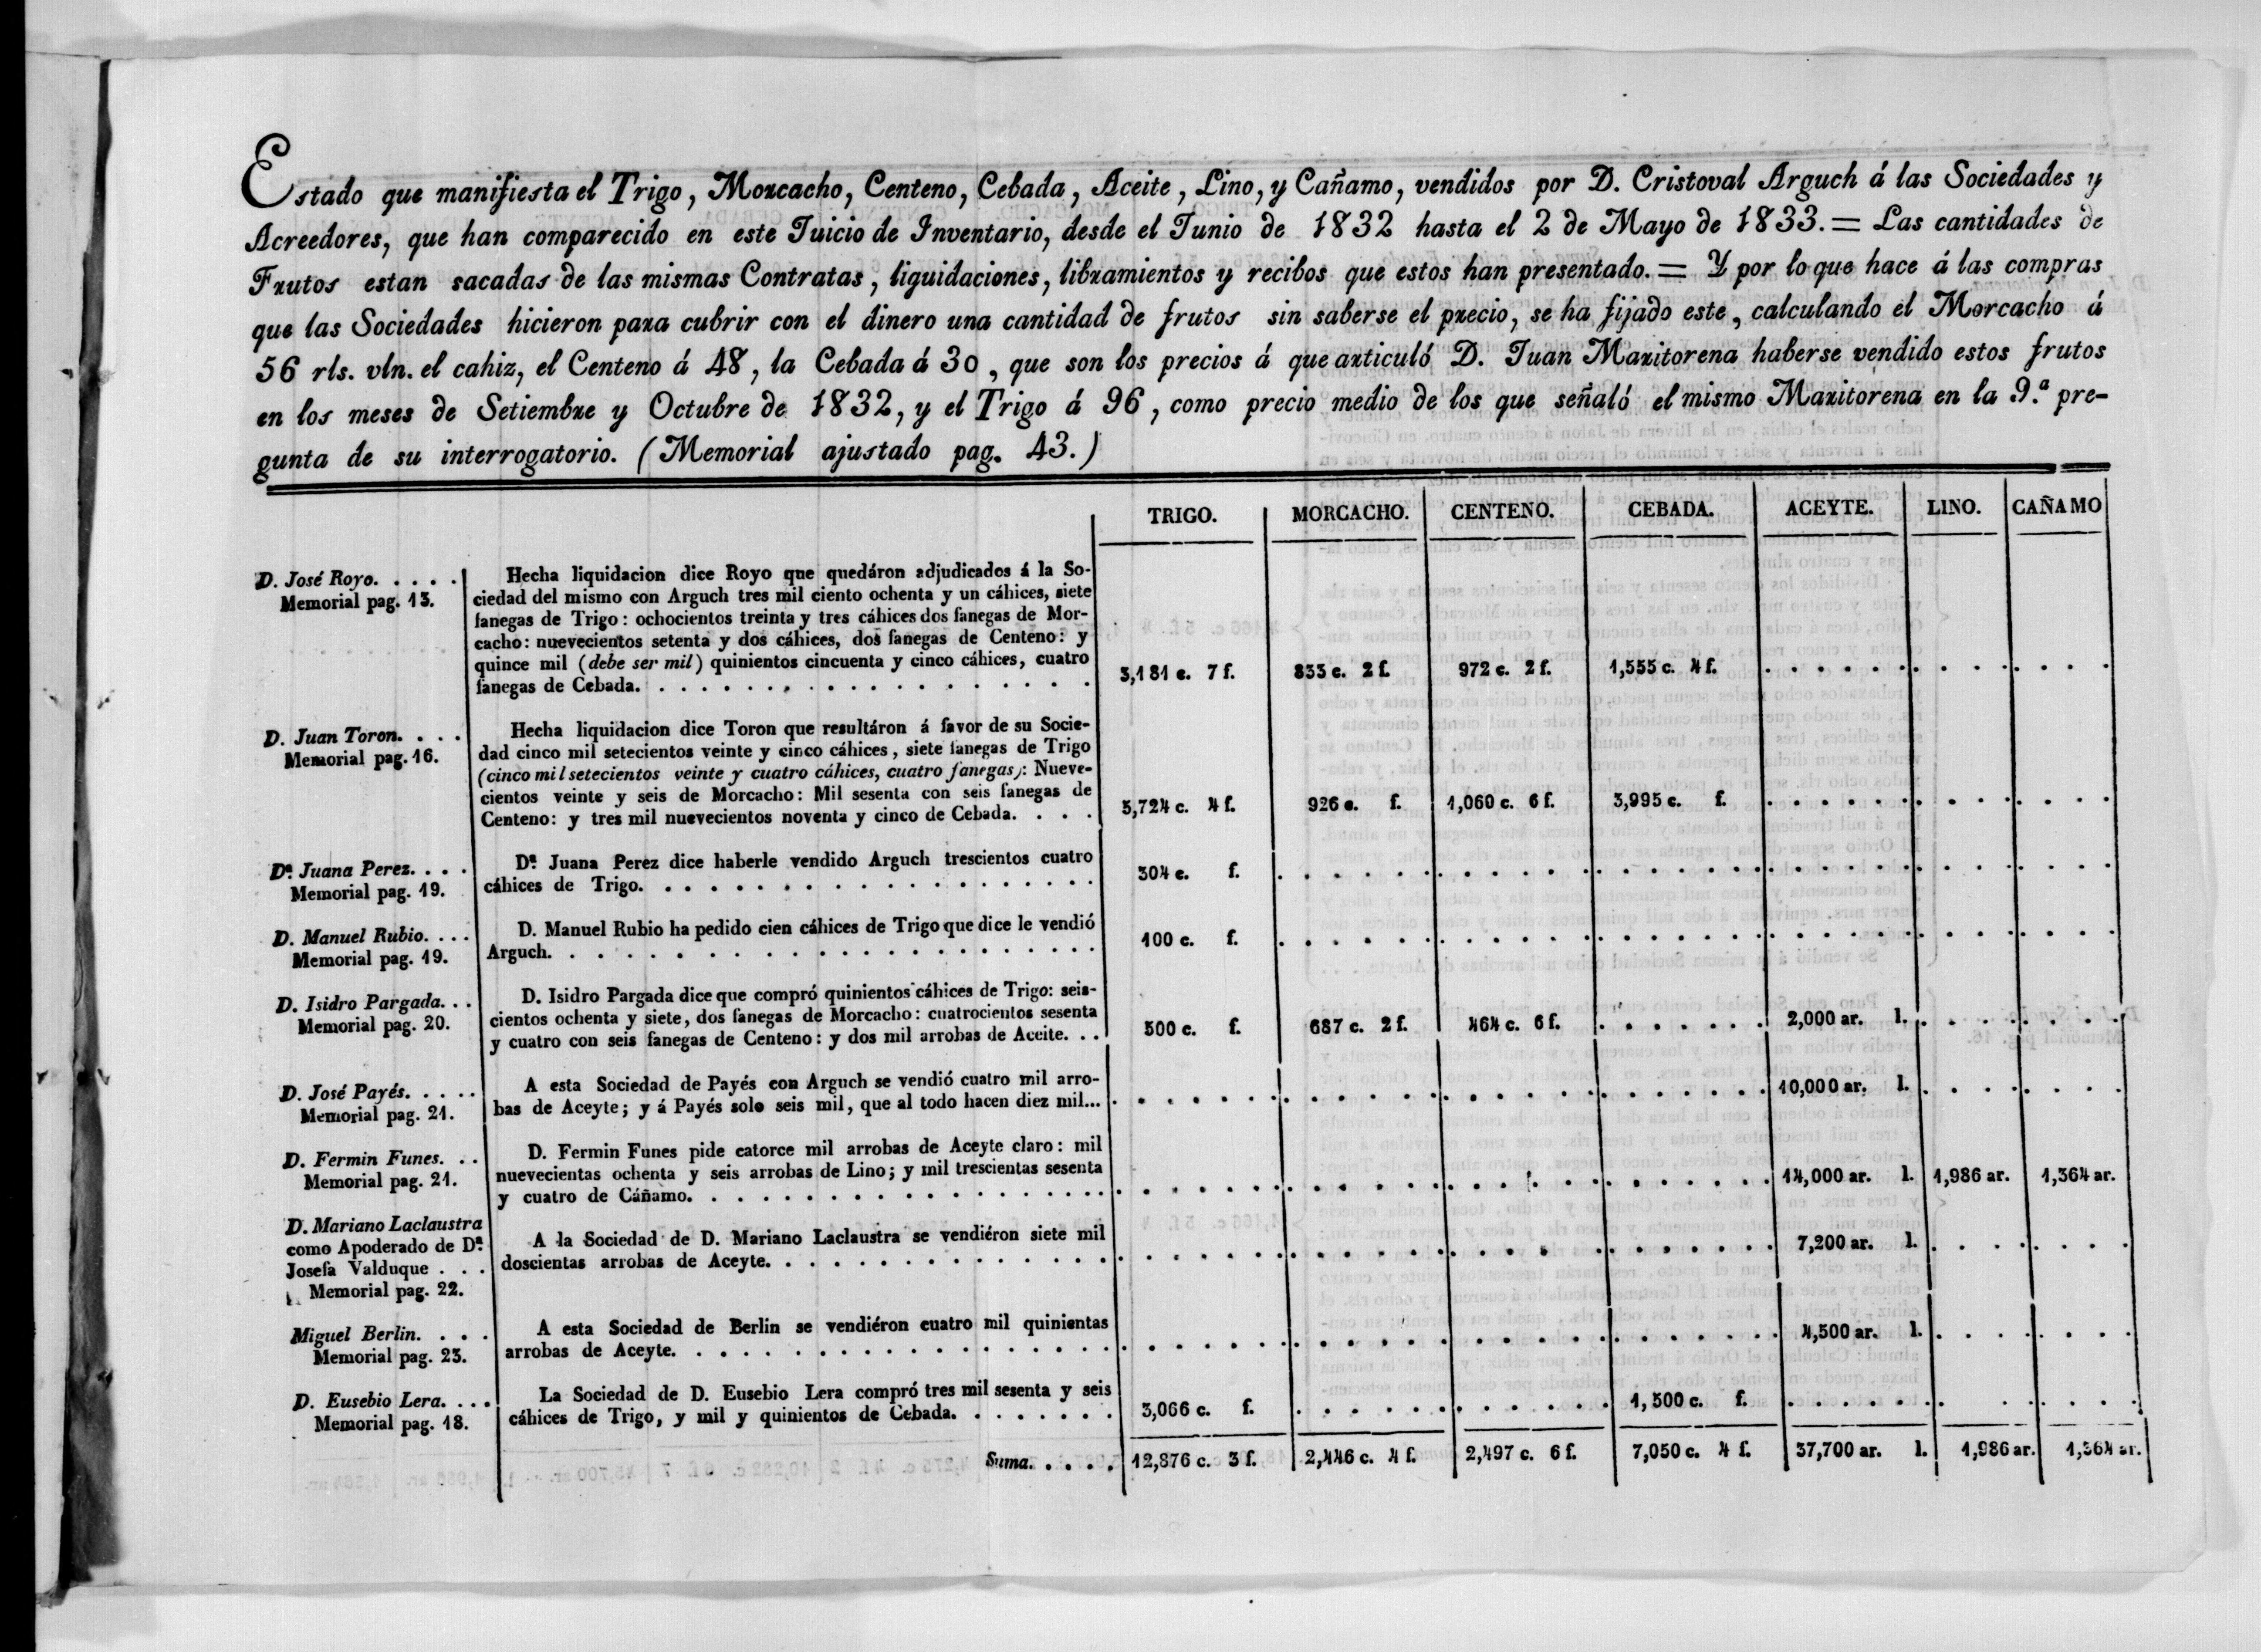 Estado que manifiesta el Trigo, Morcacho, Centeno, Cebada, Aceite, Lino, y Cañamo, vendidos por D. Cristoval Arguch á las Sociedades y
Acreedores, que han comparecido en este Juicio de Inventario, desde el Junio de 1832 hasta el 2 de Mayo de 1833. = Las cantidades de
Frutos estan sacadas de las mismas Contratas, liquidaciones, libramientos y recibos que estos han presentado. = Y por lo que hace á las compras
que las Sociedades hicieron para cubrir con el dinero una cantidad de frutos sin saberse el precio, se ha fijado este, calculando el Morcacho á
56 rls. vln. el cahiz, el Centeno á 48, la Cebada á 30, que son los precios á que articuló D. Juan Maritorena haberse vendido estos frutos
en los meses de Setiembre y Octubre de 1832, y el Trigo á 96, como precio medio de los que señaló el mismo Maritorena en la 9.ª pre-
gunta de su interrogatorio. (Memorial ajustado pag. 43.)
TRIGO. MORCACHO. CENTENO. CEBADA. ACEYTE. LINO. CAÑAMO
D. José Royo. . . . .
Memorial pag. 13.
Hecha liquidacion dice Royo que quedáron adjudicados á la So-
ciedad del mismo con Arguch tres mil ciento ochenta y un cáhices, siete
fanegas de Trigo: ochocientos treinta y tres cáhices dos fanegas de Mor-
cacho: nuevecientos setenta y dos cáhices, dos fanegas de Centeno: y
quince mil (debe ser mil) quinientos cincuenta y cinco cáhices, cuatro
fanegas de Cebada. 3,181 c. 7 f. 833 c. 2 f. 972 c. 2 f. 1,555 c. 4 f.
D. Juan Toron. . . .
Memorial pag. 16.
Hecha liquidacion dice Toron que resultáron á favor de su Socie-
dad cinco mil setecientos veinte y cinco cáhices, siete fanegas de Trigo
(cinco mil setecientos veinte y cuatro cáhices, cuatro fanegas): Nueve-
cientos veinte y seis de Morcacho: Mil sesenta con seis fanegas de
Centeno: y tres mil nuevecientos noventa y cinco de Cebada. . . . 5,724 c. 4 f. 926 c. f. 1,060 c. 6 f. 3,995 c. f.
Dª. Juana Perez. . . .
Memorial pag. 19.
Dª. Juana Perez dice haberle vendido Arguch trescientos cuatro
cáhices de Trigo. 304 c. f.
D. Manuel Rubio. . . .
Memorial pag. 19.
D. Manuel Rubio ha pedido cien cáhices de Trigo que dice le vendió
Arguch. 100 c. f.
D. Isidro Pargada. . .
Memorial pag. 20.
D. Isidro Pargada dice que compró quinientos cáhices de Trigo: seis-
cientos ochenta y siete, dos fanegas de Morcacho: cuatrocientos sesenta
y cuatro con seis fanegas de Centeno: y dos mil arrobas de Aceite. . . 500 c. f. 687 c. 2 f. 464 c. 6 f. 2,000 ar. l.
D. José Payés. . . . .
Memorial pag. 21.
A esta Sociedad de Payés con Arguch se vendió cuatro mil arro-
bas de Aceyte; y á Payés solo seis mil, que al todo hacen diez mil... 10,000 ar. l.
D. Fermin Funes. . .
Memorial pag. 21.
D. Fermin Funes pide catorce mil arrobas de Aceyte claro: mil
nuevecientas ochenta y seis arrobas de Lino; y mil trescientas sesenta
y cuatro de Cáñamo. 14,000 ar. l. 1,986 ar. 1,364 ar.
D. Mariano Laclaustra
como Apoderado de Dª.
Josefa Valduque . . .
Memorial pag. 22.
A la Sociedad de D. Mariano Laclaustra se vendiéron siete mil
doscientas arrobas de Aceyte. 7,200 ar. l.
Miguel Berlin. . . .
Memorial pag. 23.
A esta Sociedad de Berlin se vendiéron cuatro mil quinientas
arrobas de Aceyte. 4,500 ar. l.
D. Eusebio Lera. . . .
Memorial pag. 18.
La Sociedad de D. Eusebio Lera compró tres mil sesenta y seis
cáhices de Trigo, y mil y quinientos de Cebada. 3,066 c. f. 1,500 c. f.
Suma. . . . . 12,876 c. 3 f. 2,446 c. 4 f. 2,497 c. 6 f. 7,050 c. 4 f. 37,700 ar. l. 1,986 ar. 1,364 ar.